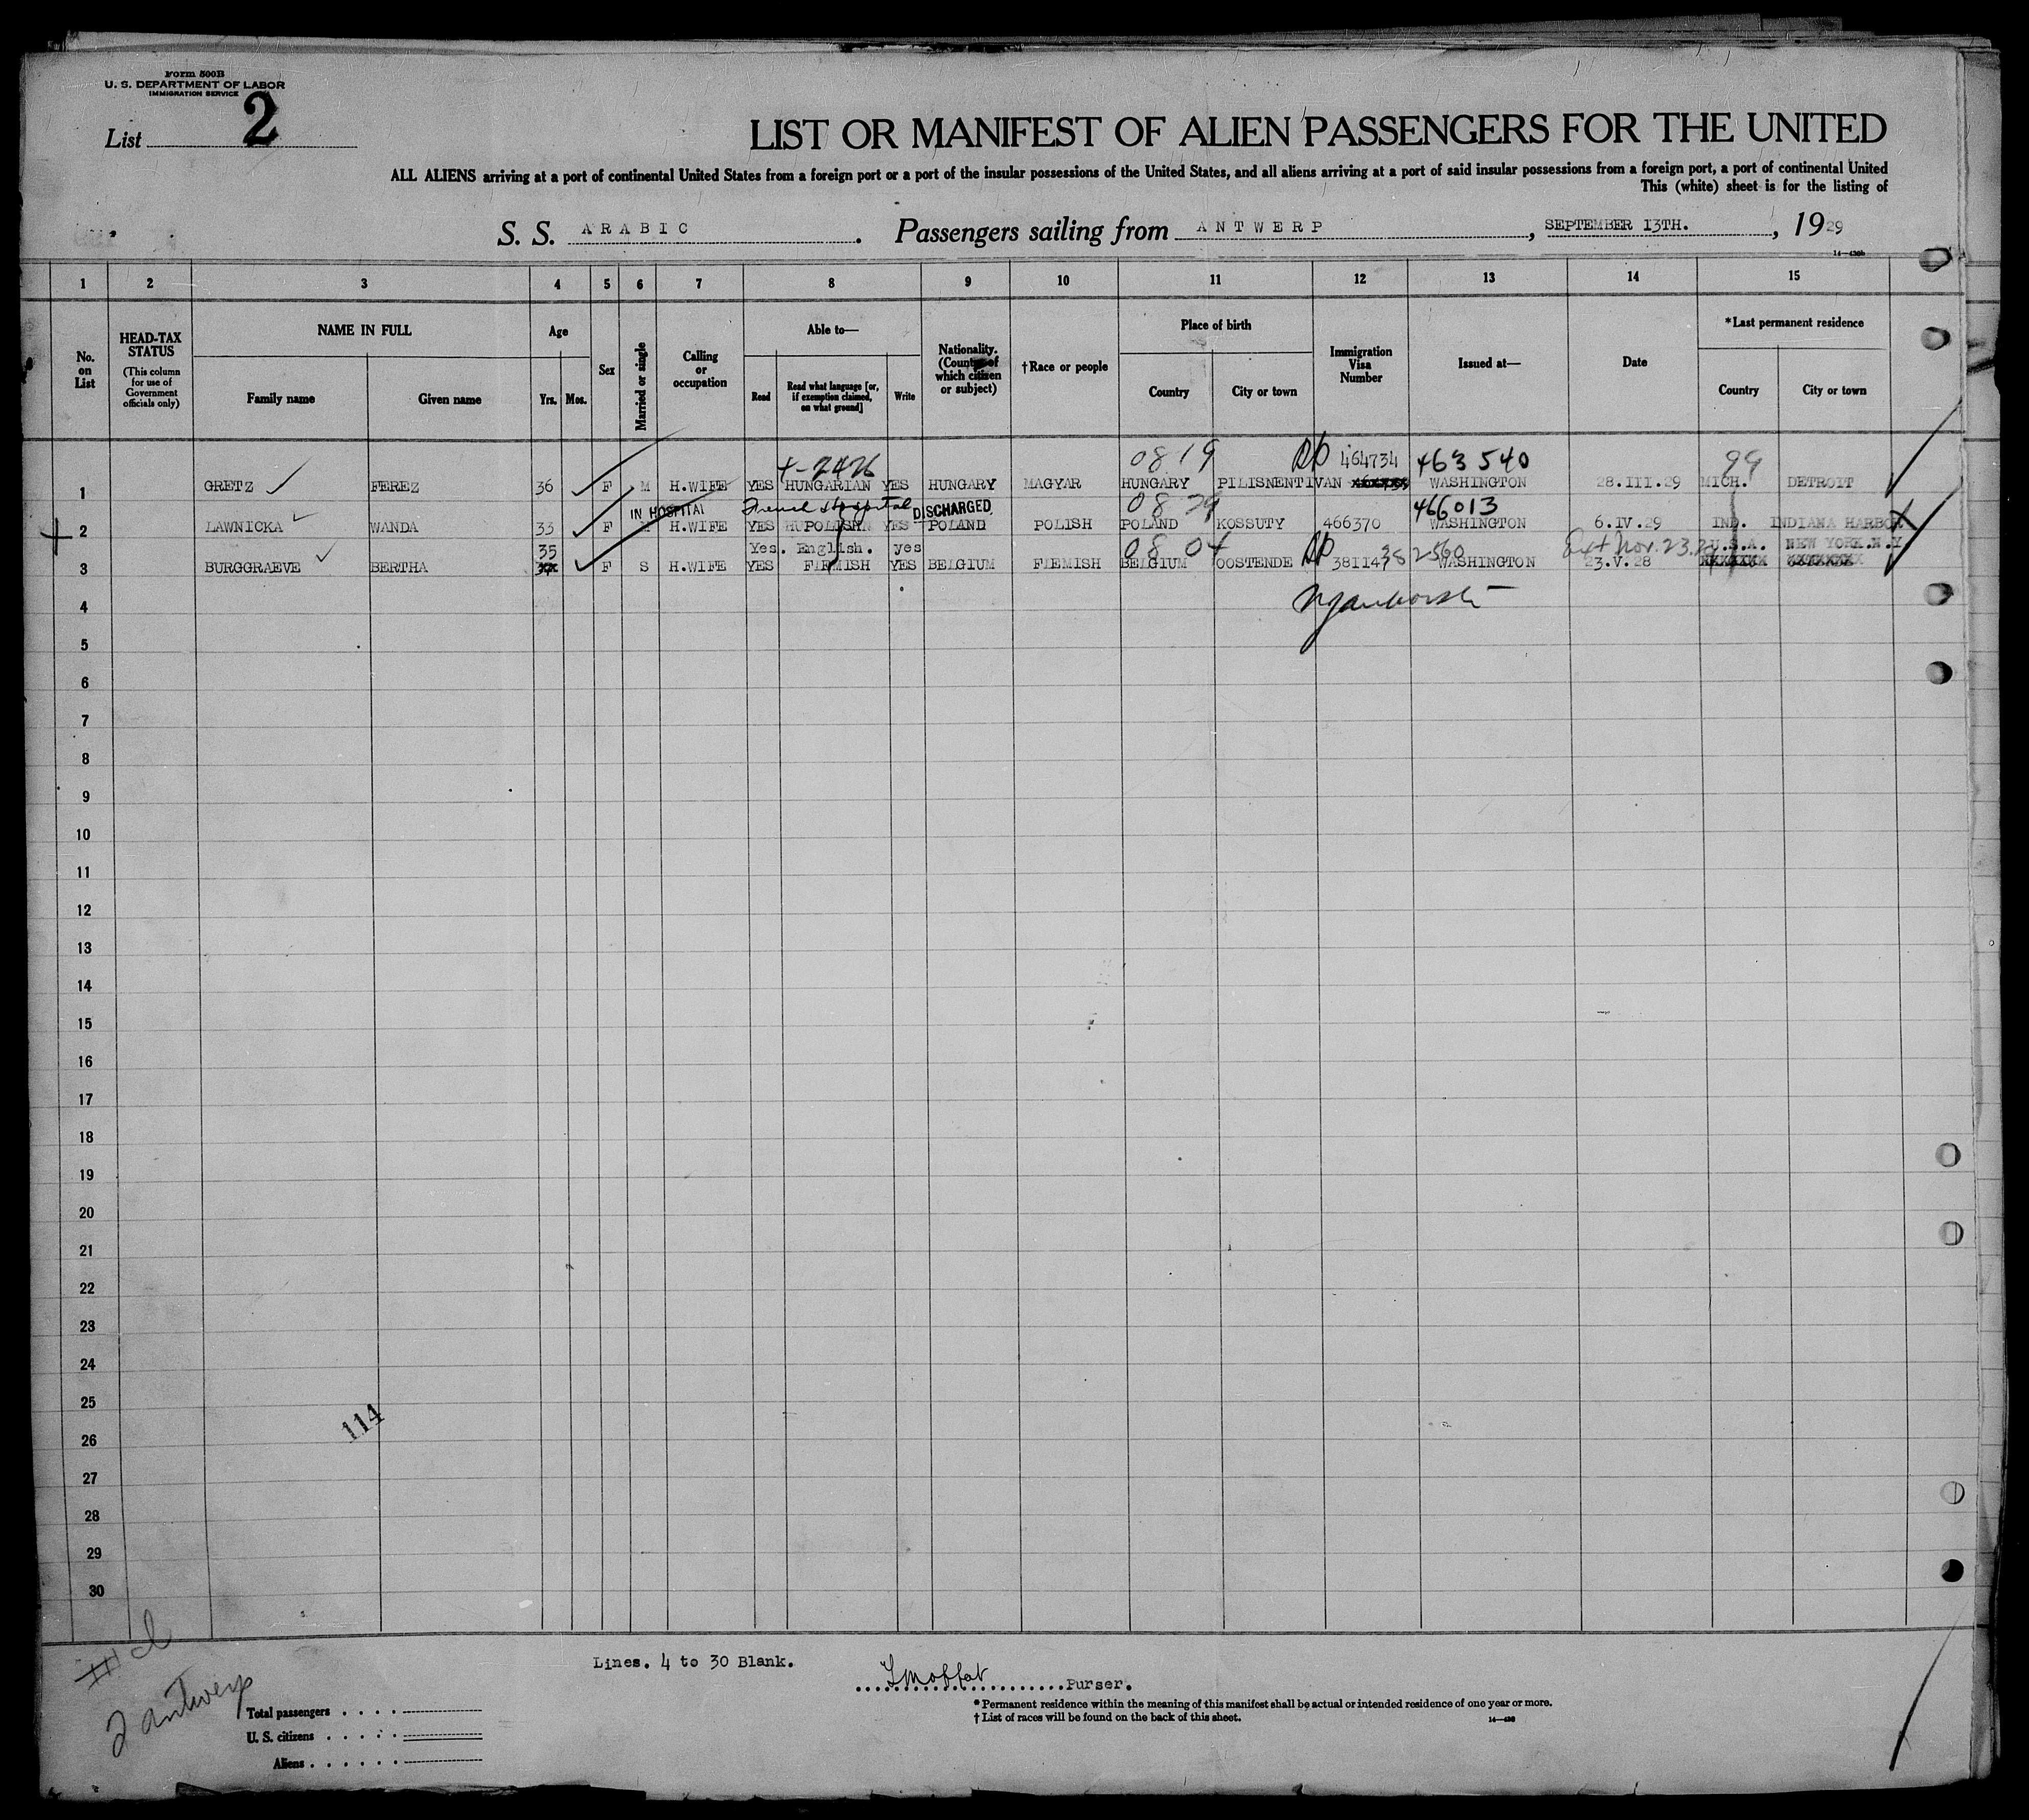 Form 500B
U. S. DEPARTMENT OF LABOR
IMMIGRATION SERVICE
List 2
LIST OR MANIFEST OF ALIEN PASSENGERS FOR THE UNITED
ALL ALIENS arriving at a port of continental United States from a foreign port or a port of the insular possessions of the United States, and all aliens arriving at a port of said insular possessions from a foreign port, a port of continental United
This (white) sheet is for the listing of
S. S. ARABIC. Passengers sailing from ANTWERP, SEPTEMBER 13TH., 1929
14—430b
1 2 3 4 5 6 7 8 9 10 11 12 13 14 15
No. on List
HEAD-TAX STATUS
(This column for use of Government officials only)
NAME IN FULL
Family name Given name
Age
Yrs. Mos.
Sex
Married or single
Calling or occupation
Able to—
Read Read what language [or, if exemption claimed, on what ground] Write
Nationality. (Country of which citizen or subject)
†Race or people
Place of birth
Country City or town
Immigration Visa Number
Issued at—
Date
*Last permanent residence
Country City or town
4-2426 0819 RP 464734 463540 99
1 GRETZ FEREZ 36 F M H.WIFE YES HUNGARIAN YES HUNGARY MAGYAR HUNGARY PILISNENTIVAN WASHINGTON 28.III.29 MICH. DETROIT
IN HOSPITAL French Hospital DISCHARGED 08 29 466013
2 LAWNICKA WANDA 33 F M H.WIFE YES POLISH YES POLAND POLISH POLAND KOSSUTY 466370 WASHINGTON 6.IV.29 IND. INDIANA HARBOR
35 Yes. English. yes 08 04 RP 2560 Ext Nov. 23. U.S.A. NEW YORK.N.Y
3 BURGGRAEVE BERTHA F S H.WIFE YES FLEMISH YES BELGIUM FLEMISH BELGIUM OOSTENDE 381143 WASHINGTON 23.V.28
4
5
6
7
8
9
10
11
12
13
14
15
16
17
18
19
20
21
22
23
24
25
114
26
27
28
29
30
Lines. 4 to 30 Blank.
Moffat Purser.
2 Antwerp
*Permanent residence within the meaning of this manifest shall be actual or intended residence of one year or more.
†List of races will be found on the back of this sheet.
14—430
Total passengers
U. S. citizens
Aliens